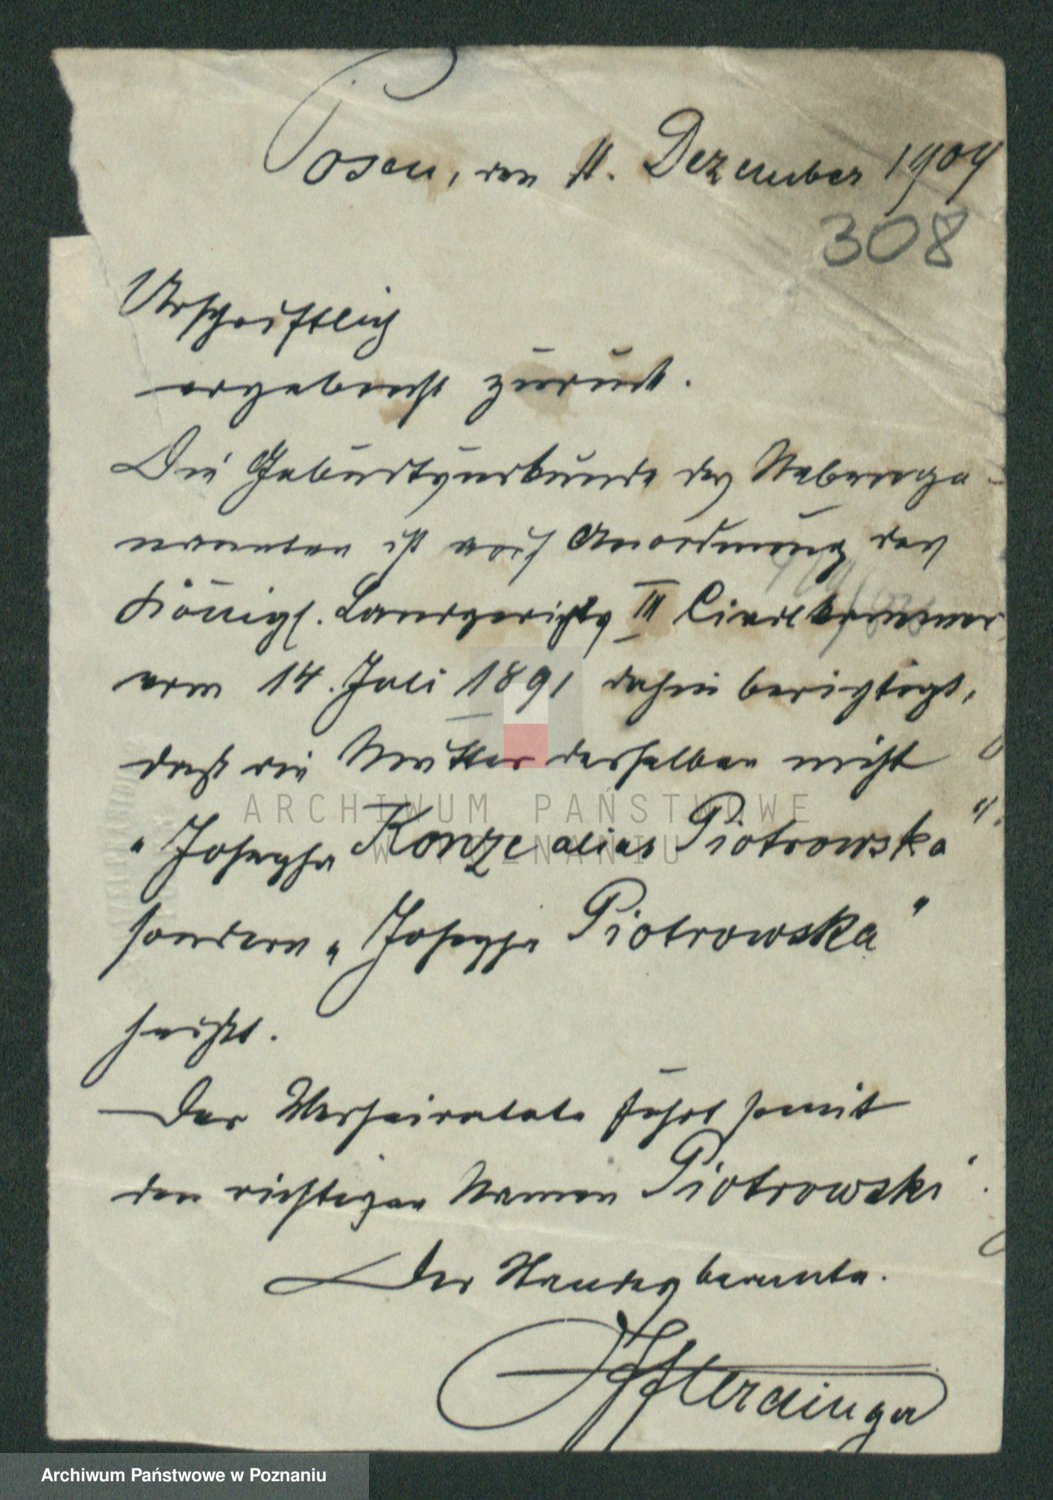 Posen, den 11. Dezember 1904
308
Urschriftlich
ergebenst zurück.
Die Geburtsurkunde des Nebenge-
nannten ist auf Anordnung des
Königl. Landgerichts III Civilkammer
vom 14. Juli 1891 dahin berigtigt,
daß die Mutter desselben nicht
"Josepha Konze alias Piotrowska"
sondern "Josepha Piotrowska"
heißt.
Der Verheiratete führt somit
den richtigen Namen Piotrowski.
Der Standesbeamte.
ARCHIWUM PAŃSTWOWE
W POZNANIU
Archiwum Państwowe w Poznaniu